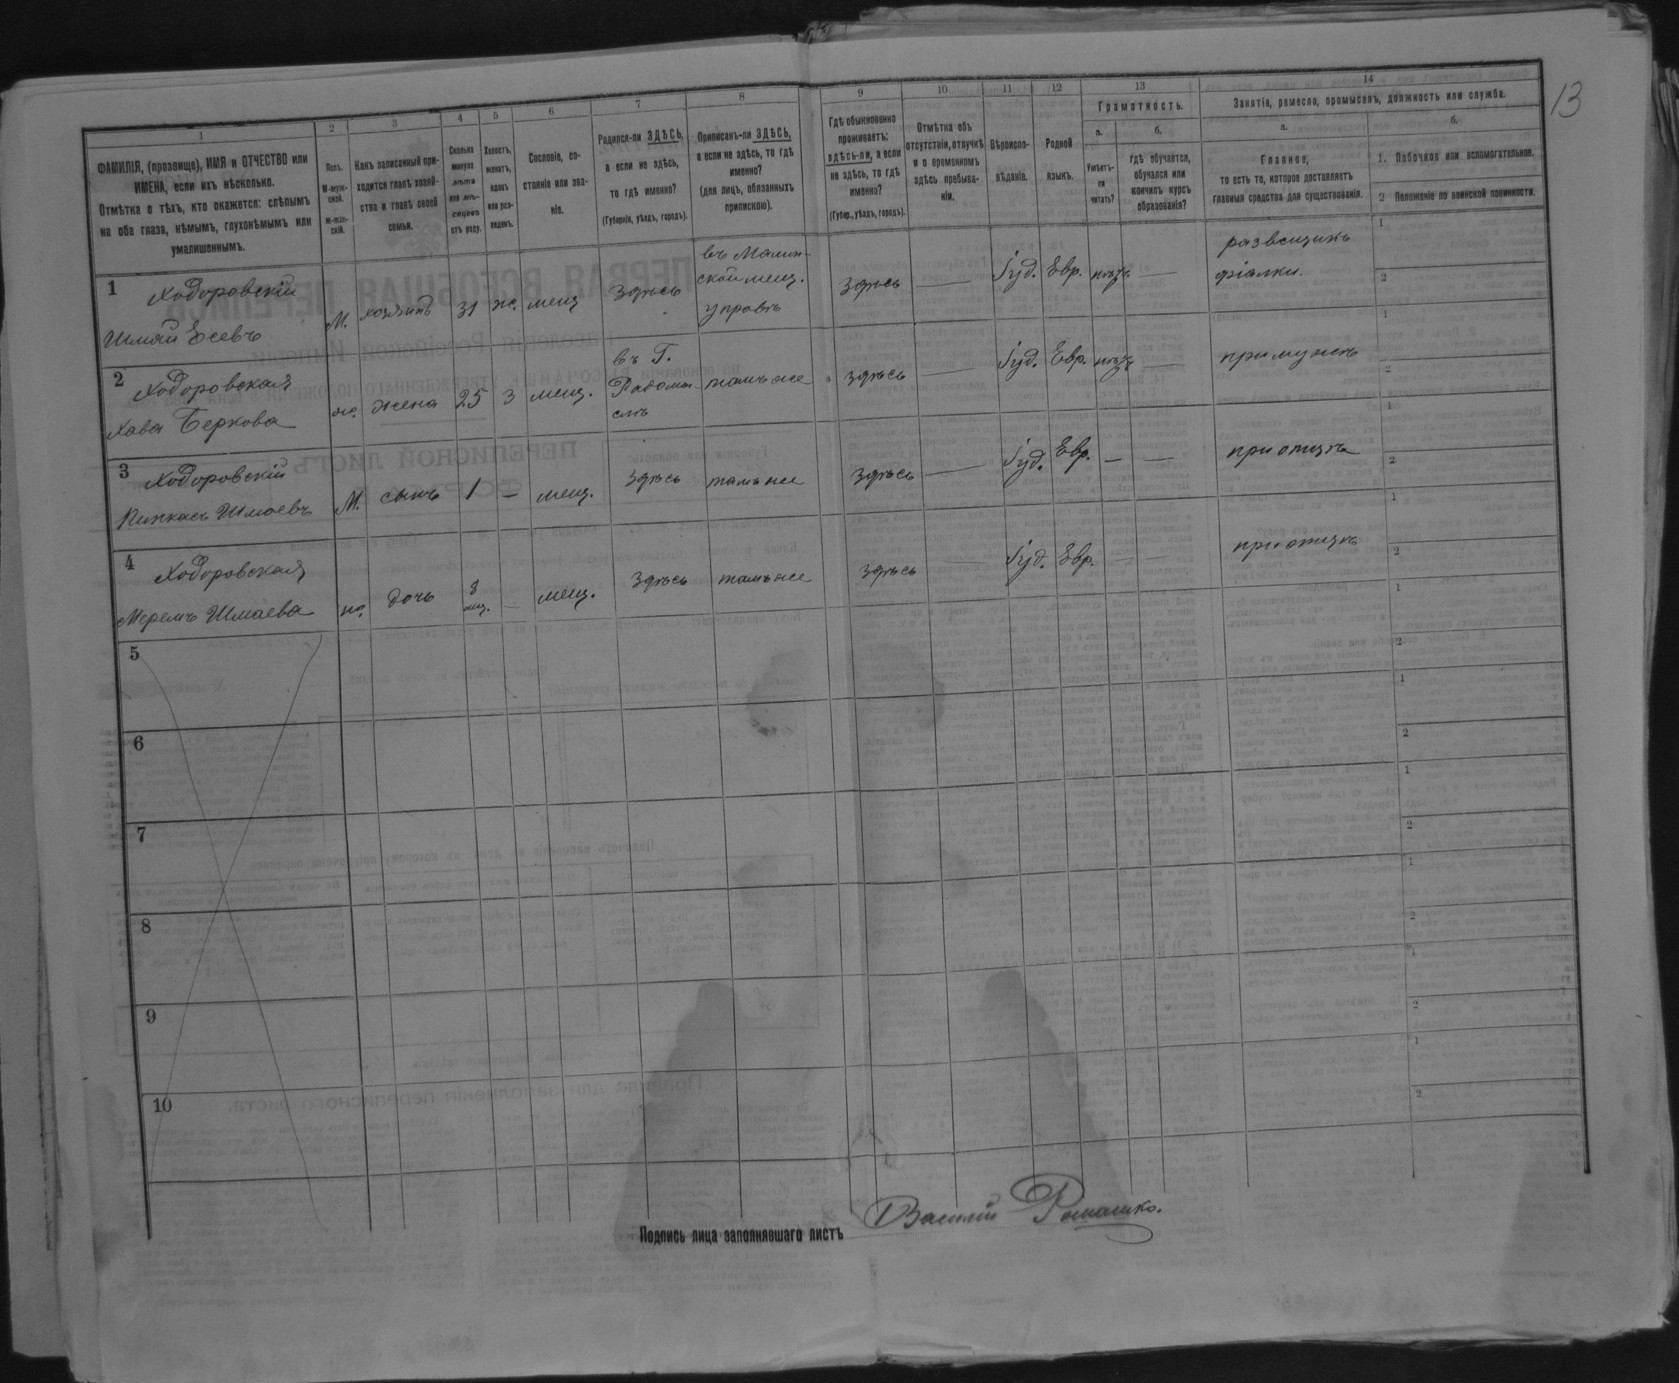 13
1 2 3 4 5 6 7 8 9 10 11 12 13 14
ФАМИЛІЯ, (прозвище), ИМЯ и ОТЧЕСТВО или
ИМЕНА, если ихъ нѣсколько.
Отмѣтка о тѣхъ, кто окажется: слѣпымъ
на оба глаза, нѣмымъ, глухонѣмымъ или
умалишеннымъ.
Полъ.
М-муж-
ской.
Ж-жен-
скій.
Какъ записанный при-
ходится главѣ хозяй-
ства и главѣ своей
семьи.
Сколько
минуло
лѣтъ
или мѣ-
сяцевъ
отъ роду.
Холостъ,
женатъ,
вдовъ
или раз-
веденъ.
Сословіе, со-
стояніе или зва-
ніе.
Родился-ли ЗДѢСЬ,
а если не здѣсь,
то гдѣ именно?
(Губернія, уѣздъ, городъ).
Приписанъ-ли ЗДѢСЬ,
а если не здѣсь, то гдѣ
именно?
(для лицъ, обязанныхъ
припискою).
Гдѣ обыкновенно
проживаетъ:
здѣсь-ли, а если
не здѣсь, то гдѣ
именно?
(Губер., уѣздъ, городъ).
Отмѣтка объ
отсутствіи, отлучкѣ
и о временномъ
здѣсь пребыва-
ніи.
Вѣроиспо-
вѣданіе.
Родной
языкъ.
Грамотность.
а.
Умѣетъ-
ли
читать?
б.
гдѣ обучается,
обучался или
кончилъ курсъ
образованія?
Занятіе, ремесло, промыселъ, должность или служба.
а.
Главное,
то есть то, которое доставляетъ
главныя средства для существованія.
б.
1. Побочное или вспомогательное.
2 Положеніе по воинской повинности.
1 Ходоровскій
Шмай Есевъ
М. хозяинъ 31 ж. мещ здѣсь
въ Малин-
ской мещ.
управѣ
здѣсь — Іуд. Евр. нѣтъ —
развещикъ
фіалки.
1
2
2 Ходоровская
Хава Беркова
ж. жена 25 з мещ.
въ Г.
Радомы-
слѣ
тамъ же здѣсь — Іуд. Евр. нѣтъ — при мужѣ
1
2
3 Ходоровскій
Пинкасъ Шмаевъ
М. сынъ 1 — мещ. здѣсь тамъ же здѣсь — Іуд. Евр. — — при отцѣ
1
2
4 Ходоровская
Меремъ Шмаева
ж. дочь 8
мщ. — мещ. здѣсь тамъ же здѣсь — Іуд. Евр. — — при отцѣ
1
2
5
1
2
6
1
2
7
1
2
8
1
2
9
1
2
10
1
2
Подпись лица заполнявшаго листъ Василій Ромашко.